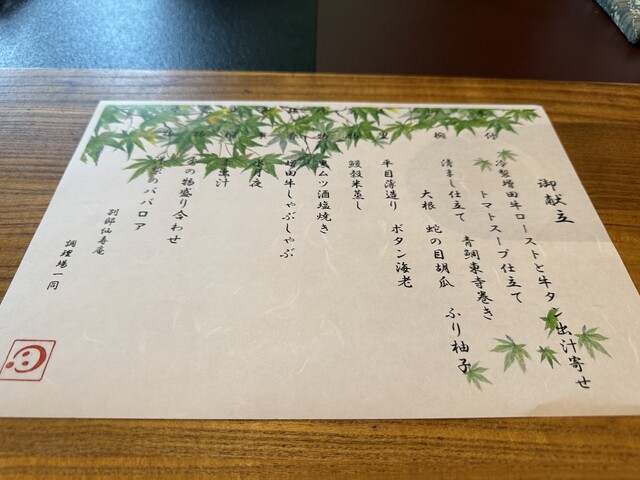 御献立
冷製増田牛ローストと牛タン出汁寄せ
トマトスープ仕立て
清まし仕立て 青鯛東寺巻き
大根 蛇の目胡瓜 ふり柚子
平目薄造り ボタン海老
鰻穀米蒸し
ムツ酒塩焼き
増田牛しゃぶしゃぶ
月夜
出汁
の物盛り合わせ
のババロア
別邸仙寿庵
調理場一同